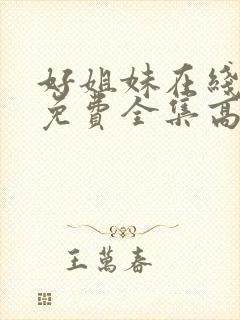 好姐妹在綫
免費全集高
王萬春